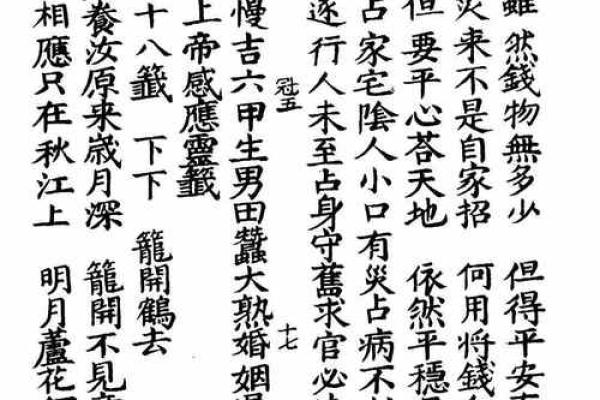 雖然錢物無多少　但得平安
災来不是自家招　何用將錢
但要平心荅天地　依然平穩
占家宅陰人小口有災占病不
逐行人未至占身守舊求官必
冠五　十七
慢吉六甲生男田蠶大熟婚姻
上帝感應靈籤
十八籤　下下　籠開鶴去
養汝原来歲月深　籠開不見
相應只在秋江上　明月蘆花